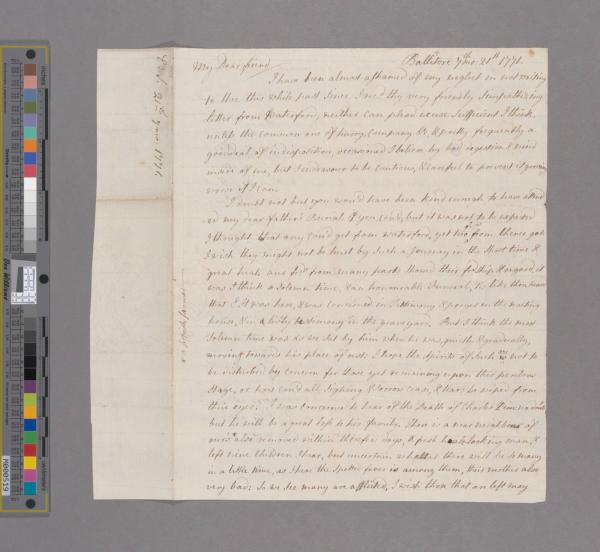 Ballitore 7th mo: 21st 1771.
My Dear friend
I have been almost ashamed of my neglect in not writing
to thee this while past since I recd thy very friendly sympathizing
letter from Waterford, neither can plead excuse sufficient I think,
unless the common one of hurry, Company &c, & pretty frequently a
good deal of indisposition, occasioned I believe by bad digestion & wind
inside of me, but I endeavour to be cautious, & careful to prevent it growing
worse if I can.
I doubt not but you would have been kind enough to have attend
ed my dear father's Funeral if you cou'd, but it was not to be expected
I thought that any cou'd get from waterford, yet two from thence got
I wish they might not be hurt by such a Journey in the short time &
great heat, and frds from many parts shewed their frdship & regard, it
was I think a solemn time, & an honourable Funeral,
that E. was here, & was concerned in Testimony & prayer in the meeting
house, & in a lively testimony in the graveyard. But I think the most
solemn time was as we sat by him when he was quietly & gradually,
moving towards his place of rest: I hope the spirits of such are not to
be disturbed by concern for those yet remaining upon this painful
stage, or how cou'd all sighing & sorrow cease, & tears be wiped from
their eyes. I was concerned to hear of the Death of Charles
but he will be a great loss to his family. There is a near neighbour of
ours also removed within these few days, a fresh healthlooking man, &
left nine children I hear, but uncertain whether there will be so many
in a little time, as I hear the spotted fever is among them, their mother also
very bad: so we see many are afflicted, I wish those that are left may
M000519
inches
centimetres